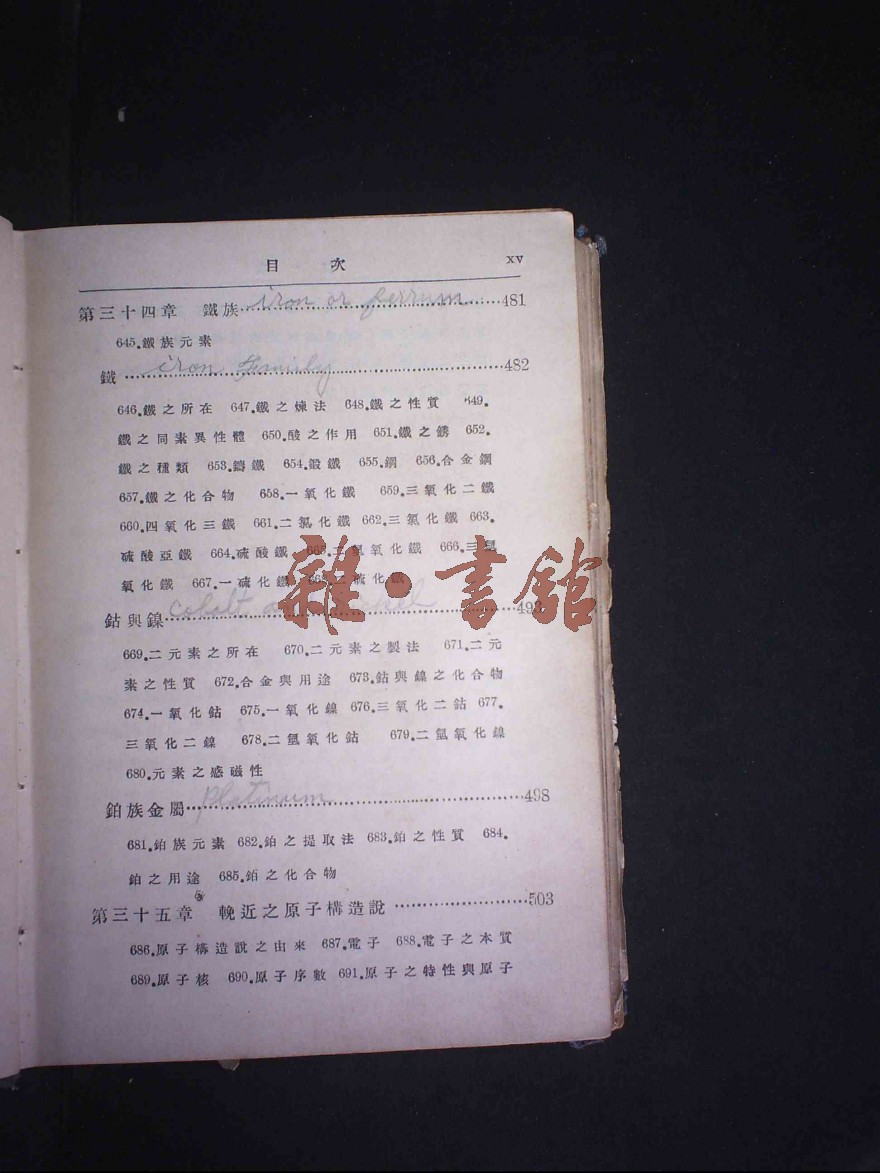 目 次 xv
第三十四章 鐵族 iron or ferrum 481
645.鐵族元素
鐵 iron family 482
646.鐵之所在 647.鐵之煉法 648.鐵之性質 649.
鐵之同素異性體 650.酸之作用 651.鐵之銹 652.
鐵之種類 653.鑄鐵 654.鍛鐵 655.鋼 656.合金鋼
657.鐵之化合物 658.一氧化鐵 659.三氧化二鐵
660.四氧化三鐵 661.二氯化鐵 662.三氯化鐵 663.
硫酸亞鐵 664.硫酸鐵 665.二氫氧化鐵 666.三氫
氧化鐵 667.一硫化鐵 668.二硫化鐵
雜·書館
鈷與鎳 cobalt nickel
669.二元素之所在 670.二元素之製法 671.二元
素之性質 672.合金與用途 673.鈷與鎳之化合物
674.一氧化鈷 675.一氧化鎳 676.三氧化二鈷 677.
三氧化二鎳 678.二氫氧化鈷 679.二氫氧化鎳
680.元素之感磁性
鉑族金屬 platinum 498
681.鉑族元素 682.鉑之提取法 683.鉑之性質 684.
鉑之用途 685.鉑之化合物
第三十五章 輓近之原子構造說 503
686.原子構造說之由來 687.電子 688.電子之本質
689.原子核 690.原子序數 691.原子之特性與原子